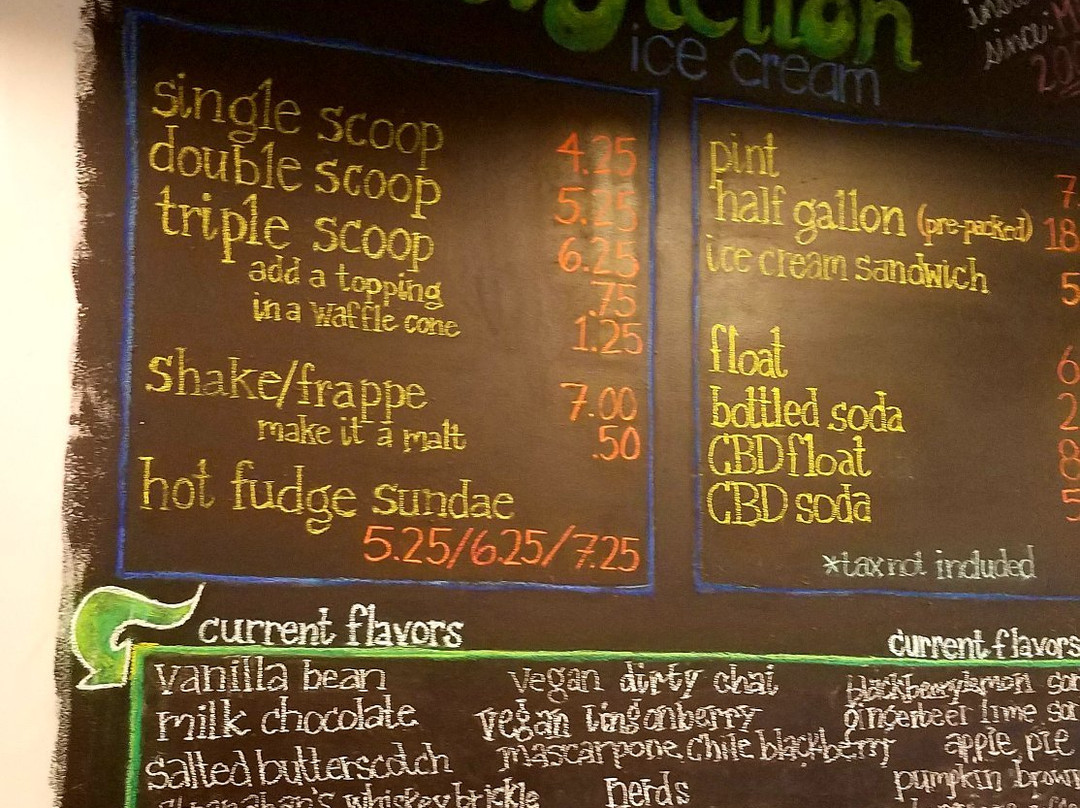 ice cream
since:
single scoop 4.25
double scoop 5.25
triple scoop 6.25
add a topping .75
in a waffle cone 1.25
shake/frappe 7.00
make it a malt .50
hot fudge sundae
5.25/6.25/7.25
pint 7.
half gallon (pre-packed) 18
ice cream sandwich 5
float 6
bottled soda 2
CBD float 8
CBD soda 5
*tax not included
current flavors
vanilla bean
milk chocolate
salted butterscotch
whiskey brickle
vegan dirty chai
vegan lingonberry
mascarpone, chile blackberry
nerds
current flavors
blackberry lemon
gingerbeer lime
apple pie
pumpkin brown